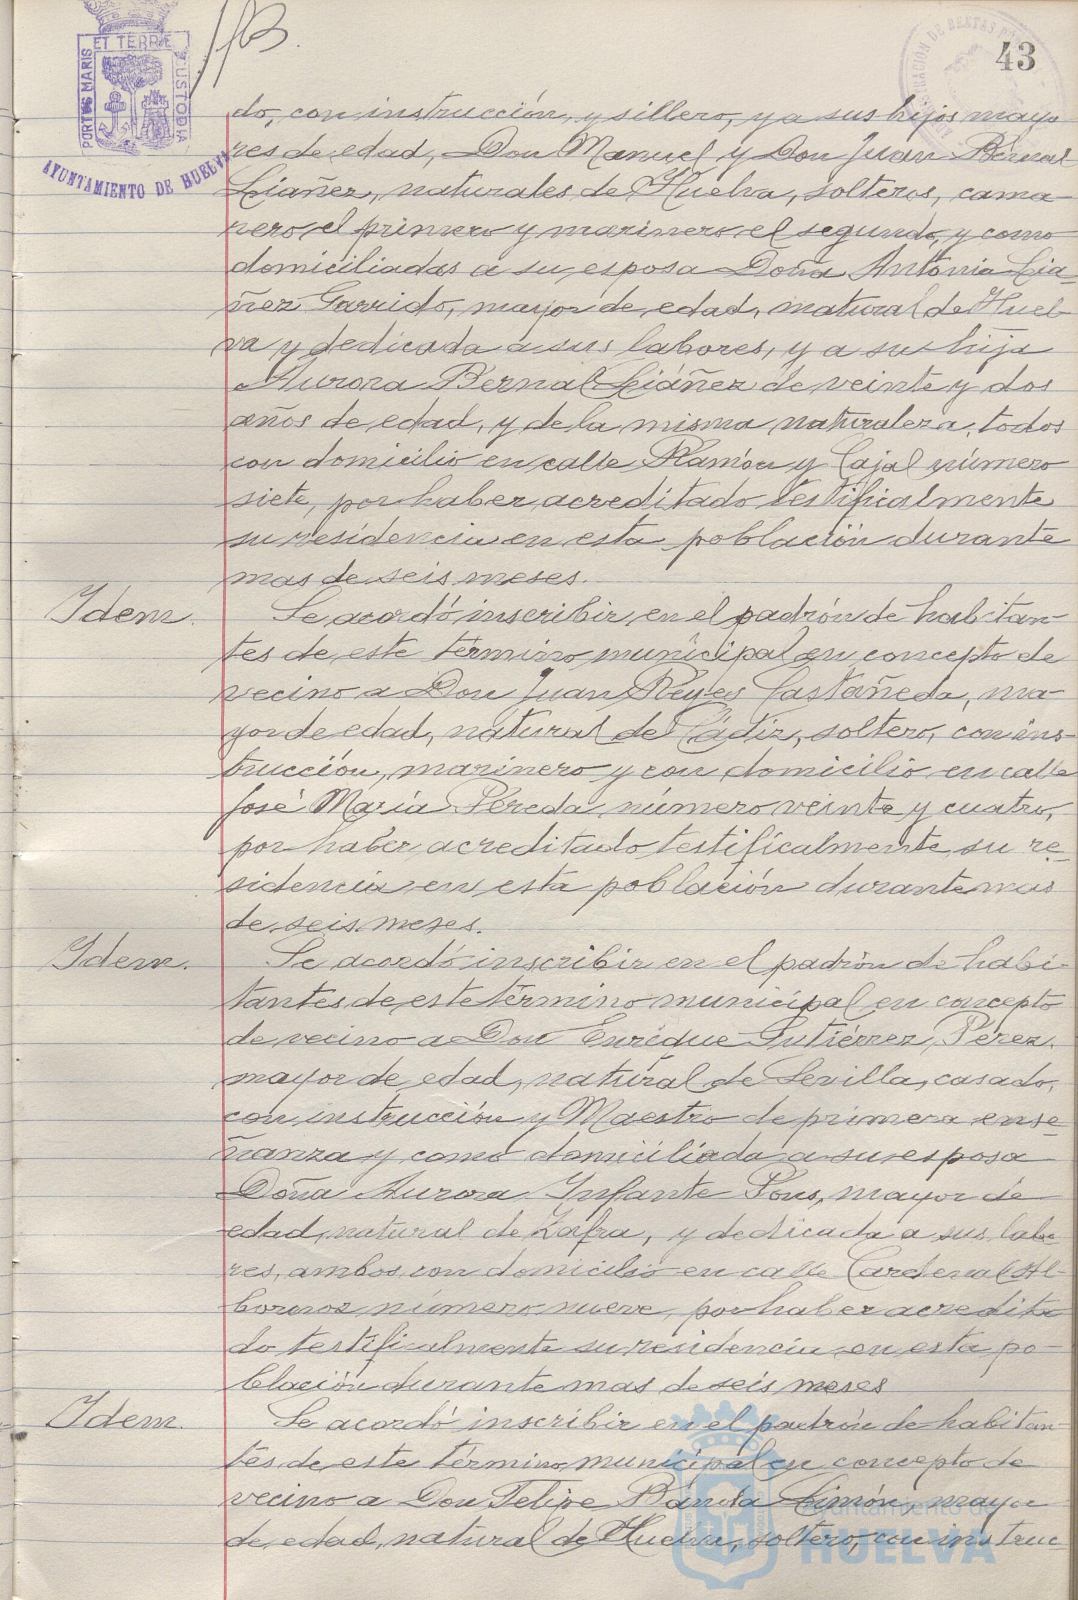 43
PORTUS MARIS ET TERRE CUSTODIA
AYUNTAMIENTO DE HUELVA
do, con instrucción, y sillero, y a sus hijos mayo
res de edad, Don Manuel y Don Juan Bernal
Liáñez, naturales de Huelva, solteros, cama-
rero el primero y marinero el segundo, y como
domiciliadas a su esposa Doña Antonia Liá-
ñez Garrido, mayor de edad, natural de Huel-
va y dedicada a sus labores, y a su hija
Aurora Bernal Liáñez de veinte y dos
años de edad, y de la misma naturaleza, todos
con domicilio en calle Ramón y Cajal número
siete, por haber acreditado testificalmente
su residencia en esta población durante
mas de seis meses.
Idem. Se acordó inscribir en el padrón de habitan-
tes de este término municipal en concepto de
vecino a Don Juan Reyes Castañeda, ma-
yor de edad, natural de Cádiz, soltero, con ins-
trucción, marinero y con domicilio en calle
José María Pereda número veinte y cuatro,
por haber acreditado testificalmente su re-
sidencia en esta población durante mas
de seis meses.
Idem. Se acordó inscribir en el padrón de habi-
tantes de este término municipal en concepto
de vecino a Don Enrique Gutiérrez Pérez,
mayor de edad, natural de Sevilla, casado,
con instrucción y Maestro de primera ense-
ñanza y como domiciliada a su esposa
Doña Aurora Infante Pons, mayor de
edad, natural de Zafra, y dedicada a sus labo-
res, ambos con domicilio en calle Cardenal Al-
bornoz número nueve, por haber acredita
do testificalmente su residencia en esta po-
blación durante mas de seis meses
Idem. Se acordó inscribir en el padrón de habitan-
tes de este término municipal en concepto de
vecino a Don Felipe Banda Limón, mayor
de edad, natural de Huelva, soltero, con instruc-
Ayuntamiento de
HUELVA